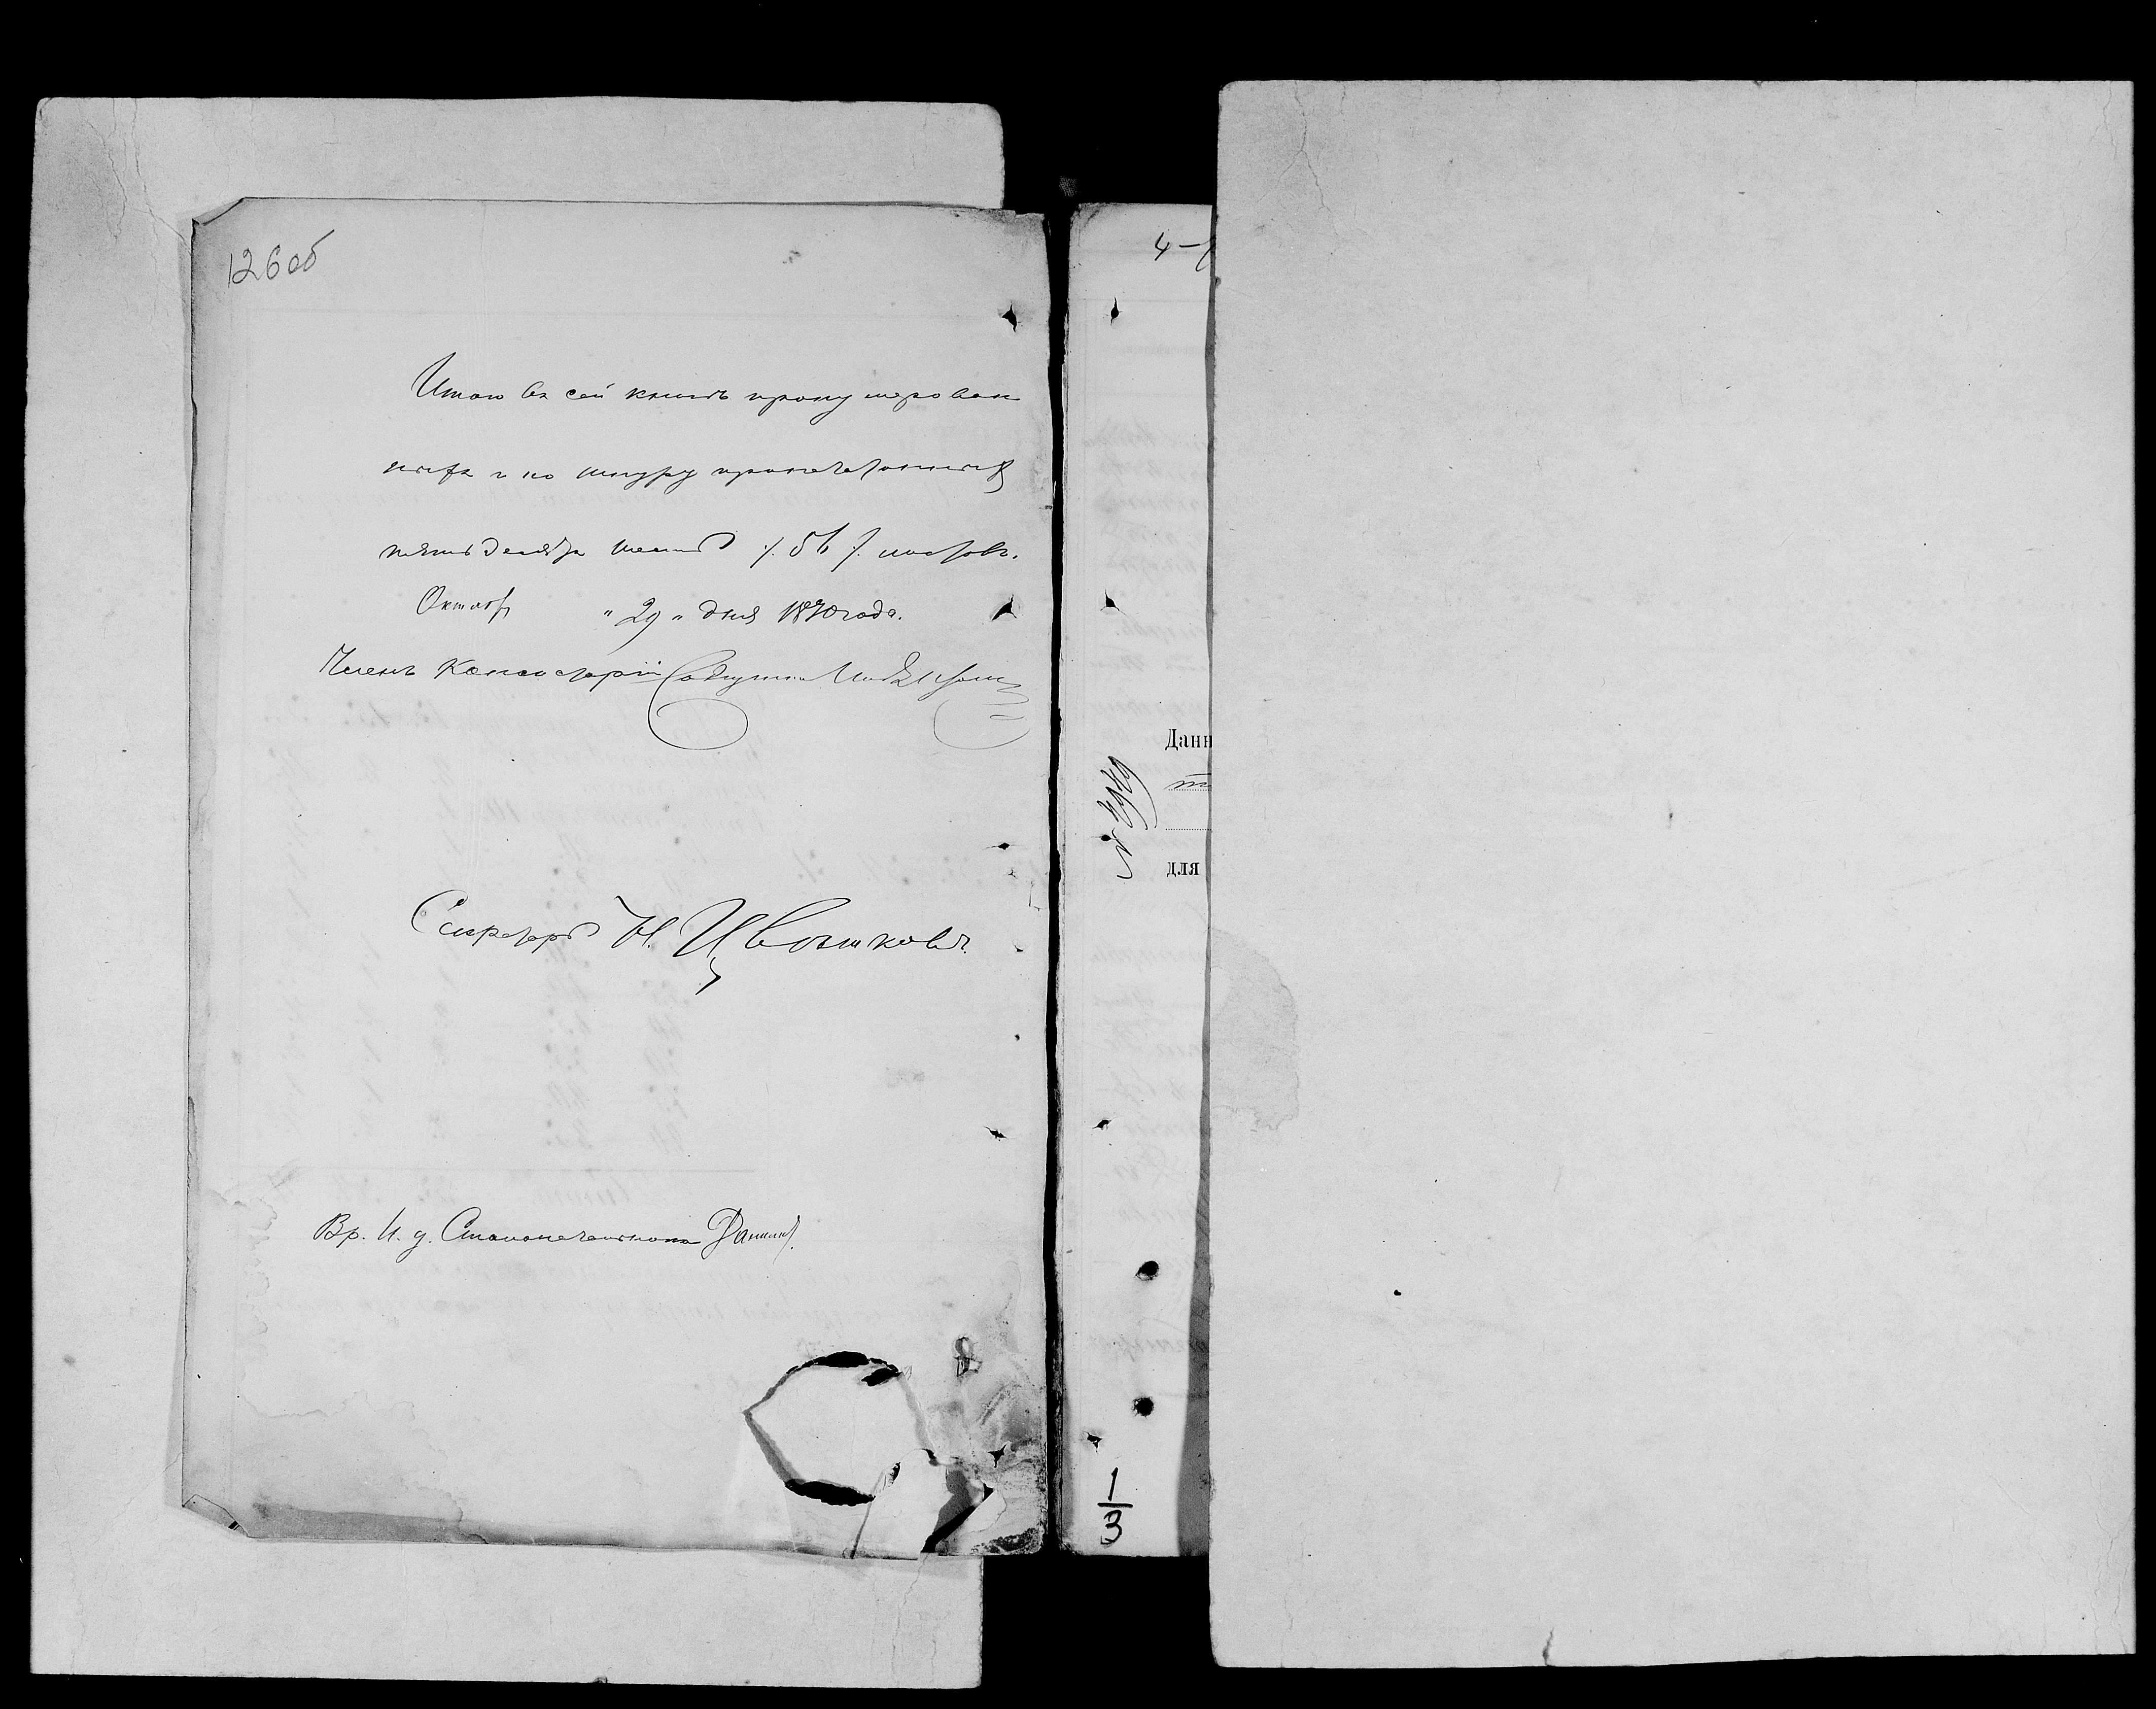 126 об
Итого въ сей книгѣ пронумерован
ныхъ и по шнуру припечатанныхъ
пятьдесятъ шесть /. 56 /. листовъ.
Октября " 29 " дня 1870 года.
Членъ Консисторіи Священникъ
Секретарь Н. Цвѣтковъ.
Вр. И. д. Столоначальника
4 –
Данн
№ 4949
для
1
3